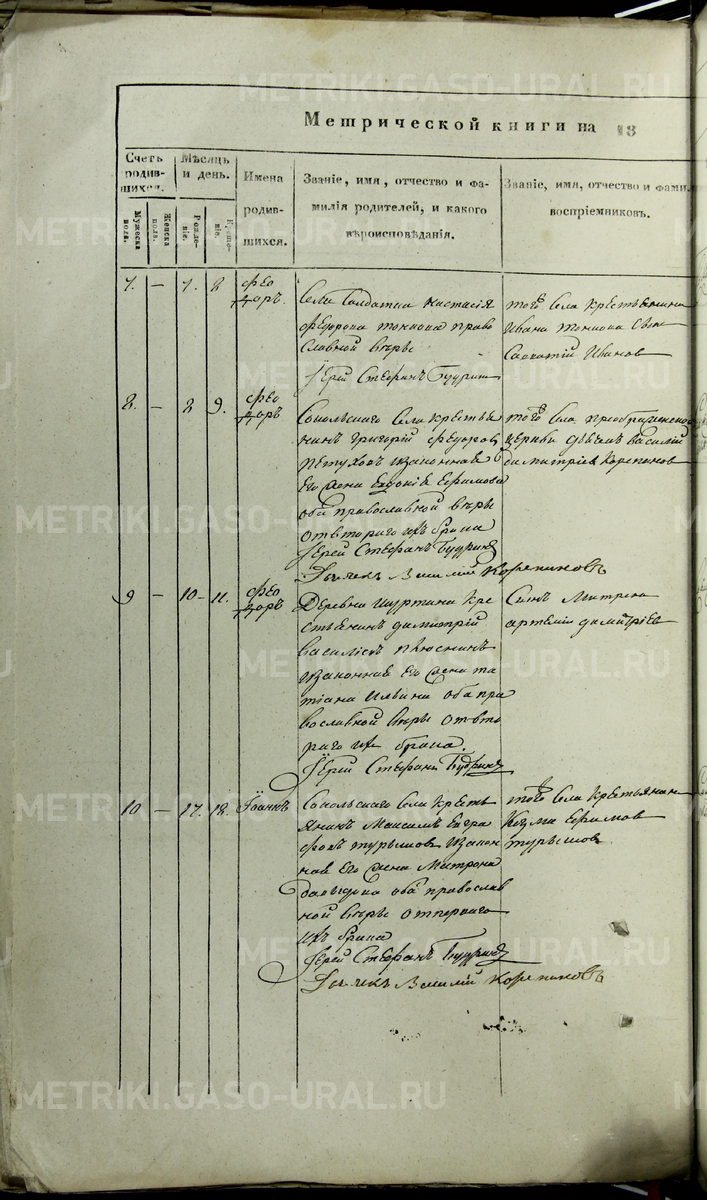 Метрической книги на 18
Счетъ родив- шихся.
Мѣсяцъ и день.
Имена родив- шихся.
Званіе, имя, отчество и фа-
милія родителей, и какого
вѣроисповѣданія.
Званіе, имя, отчество и фами
воспріемниковъ.
Мужеска пола.
Женска пола.
Рожде- ніе.
Креще- ніе.
7. — 1. 2 Фео
доръ.
Села Солдатка Настасія
Федорова право
славной вѣры
Іерей Стефанъ Будринъ
того Села Крестьянина
Ивана Сынъ
Иванов
8. — 2 9. Фео
доръ
Сокольскаго Села Крестья
нинъ Григорій Федоров
Петухов изаконная
Его Жена Евдокія Ефимова
оба православной вѣры
отвтораго ихъ брака
Іерей Стефанъ Будринъ
Дьячекъ Василій Корепановъ
того Села Преображенской
церкви дьячекъ Василій
Димитріев Корепанов
9 — 10 — 11. Фео
доръ
Деревни Шуртина Кре
стьянинъ Димитрій
Василіевъ
изаконная Его Жена Та
тіана Ильина оба пра
вославной вѣры отвто
раго ихъ брака.
Іерей Стефанъ Будринъ
Сынъ Митрева
Артемій Димитріев
10 — 17. 18. Іоаннъ
Сокольскаго Села Кресть
янинъ Максимъ Евгра
фовъ Турышов изакон
ная Его Жена Матрона
Давыдова оба православ
ной вѣры отперваго
ихъ брака
Іерей Стефанъ Будринъ
Дьячекъ Василій Корепановъ
того Села Крестьянин
Козма Ефимов
Турышов
METRIKI.GASO-URAL.RU